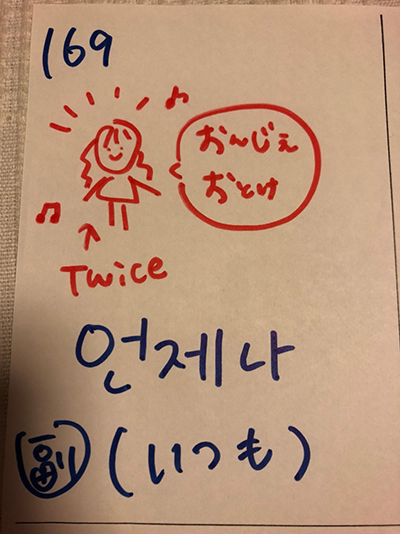 169
おんじぇ
おとけ
Twice
언제나
副 (いつも)